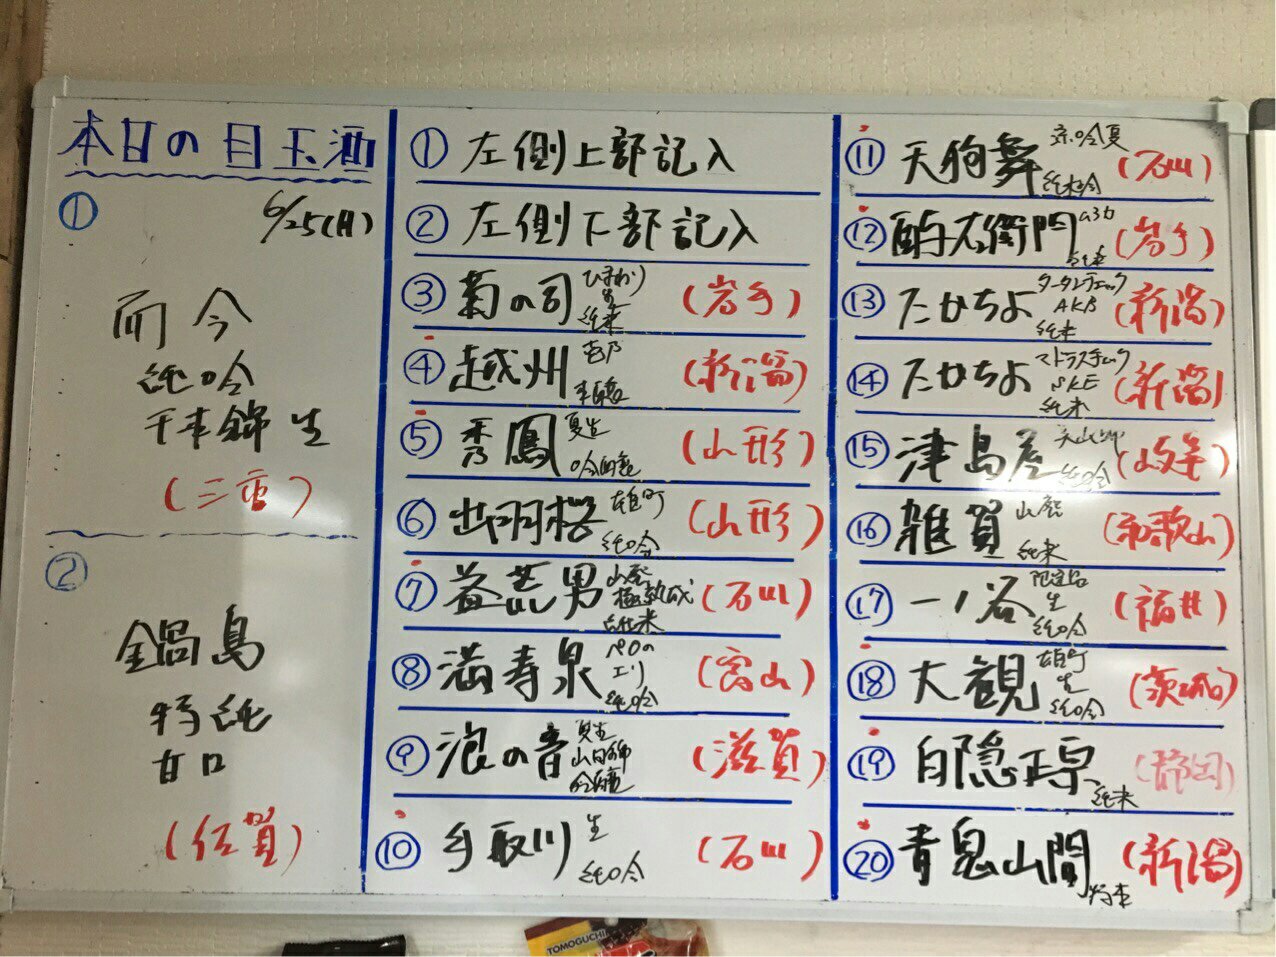 本日の目玉酒
① 6/25(月)
而今
純吟
千本錦 生
(三重)
②
鍋島
特純
甘口
(佐賀)
① 左側上部記入
② 左側下部記入
③ 菊の司 ひまわり 生 純米 (岩手)
④ 越州 壱乃 本醸 (新潟)
⑤ 秀鳳 夏生 吟醸 (山形)
⑥ 出羽桜 雄町 純吟 (山形)
⑦ 益荒男 山廃 極熟成 純米 (石川)
⑧ 満寿泉 ペロの エリ 純吟 (富山)
⑨ 浪の音 夏生 山田錦 吟醸 (滋賀)
⑩ 手取川 生 純吟 (石川)
⑪ 天狗舞 涼吟夏 純米吟 (石川)
⑫ 酉与右衛門 a3b 純米 (岩手)
⑬ たかちよ タータンチェック AKB 純米 (新潟)
⑭ たかちよ マドラスチェック SKE 純米 (新潟)
⑮ 津島屋 純吟 (岐阜)
⑯ 雑賀 山廃 純米 (和歌山)
⑰ 一ノ谷 限定品 生 純吟 (福井)
⑱ 大観 雄町 生 純吟 (茨城)
⑲ 白隠正宗 純米 (静岡)
⑳ 青鬼山間 特本 (新潟)
TOMOGUCHI